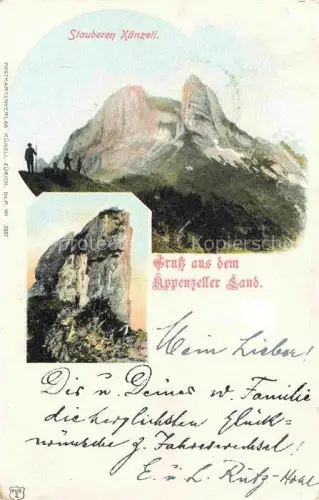 Stauberen Känzeli.
POSTKARTENVERLAG KÜNZLI, ZÜRICH. D.G.R. Nr. 2697
Gruß aus dem
Appenzeller Land.
Mein Lieber!
Dir u. Deiner w. Familie
die herzlichsten Glück-
wünsche z. Jahreswechsel!
E. u. L.